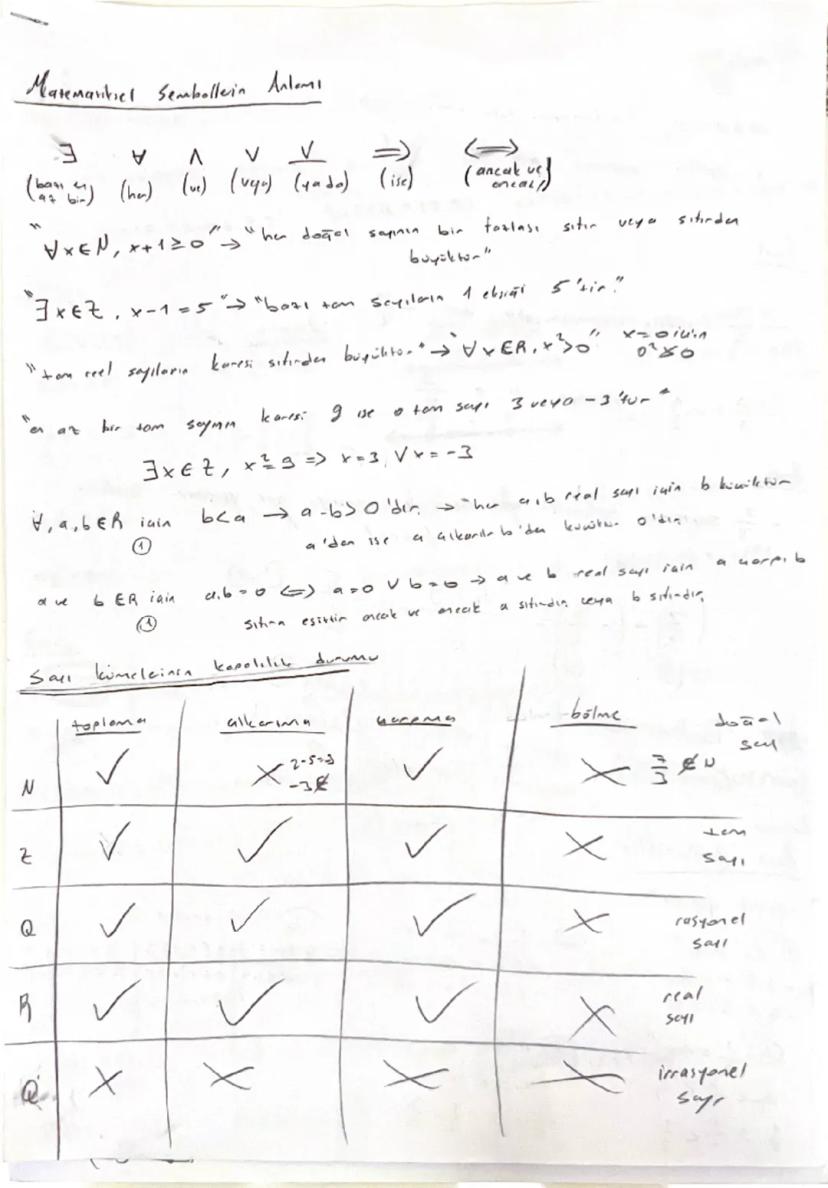 Matematiksel Sembollerin Anlamı
∃ ∀ ∧ ∨ ⊻ ⇒ ⇔
(bazı en az bir) (her) (ve) (veya) (ya da) (ise) (ancak ve ancak)
"∀x∈N, x+1≥0" → "her doğal sayının bir fazlası sıfır veya sıfırdan
büyüktür"
"∃x∈Z, x-1=5" → "bazı tam sayıların 1 eksiği 5'tir."
"tüm reel sayıların karesi sıfırdan büyüktür." → "∀x∈R, x²>0" x=0 için
0²≯0
"en az bir tam sayının karesi 9 ise o tam sayı 3 veya -3'tür"
∃x∈Z, x²=9 => x=3, ∨ x=-3
∀, a,b∈R için b<a → a-b>0'dır. → "her a,b real sayı için b küçüktür
① a'dan ise a çıkarılır b'den 0'dır.
a ve b ∈R için a.b=0 <=> a=0 ∨ b=0 → a ve b real sayı için a çarpı b
① sıfıra eşittir ancak ve ancak a sıfırdır veya b sıfırdır.
Sayı kümelerinin kapalılık durumu
toplama çıkarma çarpma bölme doğal
sayı
N ✓ × 2-5=-3 ✓ × 7/3 ∉ N
-3∉
Z ✓ ✓ ✓ × tam
sayı
Q ✓ ✓ ✓ × rasyonel
sayı
R ✓ ✓ ✓ × real
sayı
Q' × × × × irrasyonel
sayı